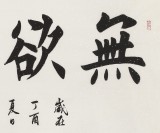 無欲
歲在
丁酉
夏日